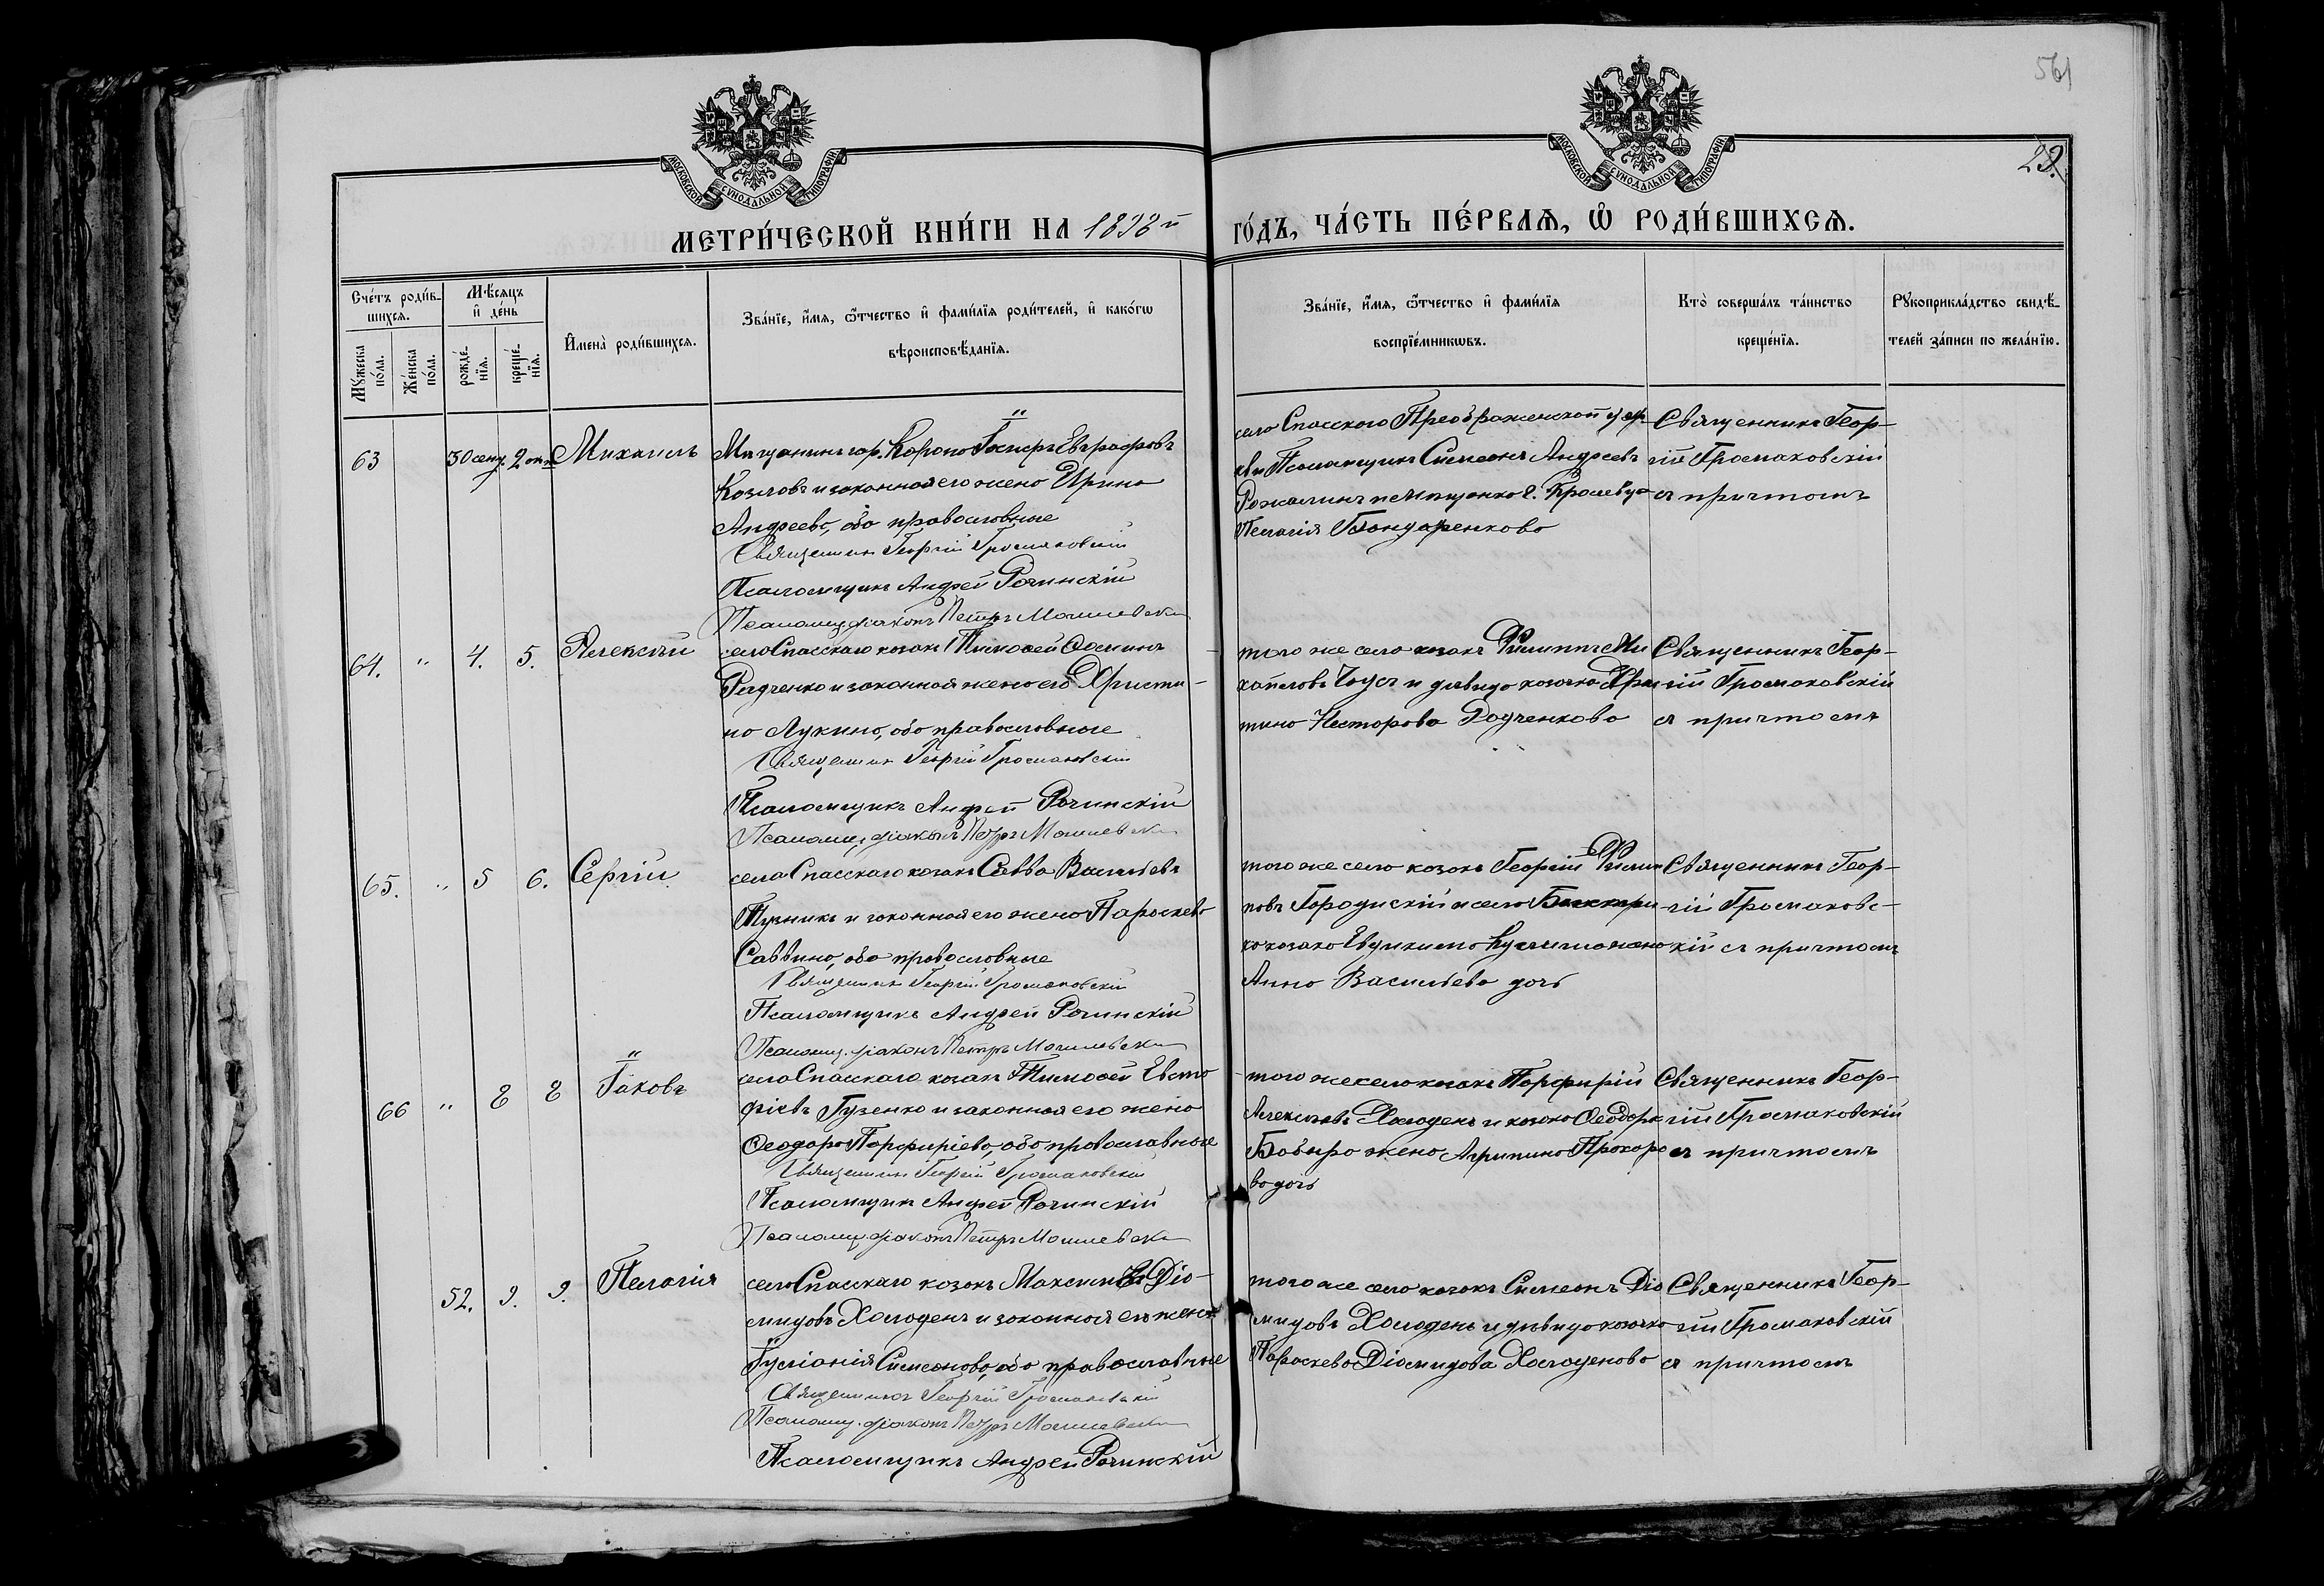 561
29.
МОСКОВСКОЙ СУНОДАЛЬНОЙ ТИПОГРАФІИ
МОСКОВСКОЙ СУНОДАЛЬНОЙ ТИПОГРАФІИ
МЕТРИ́ЧЕСКОЙ КНИ́ГИ НА 1898й
ГО́ДЪ, ЧА́СТЬ ПЕ́РВАЯ, Ѡ РОДИ́ВШИХСЯ.
Сче́тъ роди́в-
шихся.
Му́жеска по́ла.
Же́нска по́ла.
Мѣ́сяцъ
и҆ де́нь
рожде́-
нїя.
креще́-
нїя.
И҆мена̀ роди́вшихся.
Зва́нїе, и҆́мя, ѻ҆́тчество и҆ фами́лїя роди́телей, и҆ како́гѡ
вѣроисповѣ́данїя.
Зва́нїе, и҆́мя, ѻ҆́тчество и҆ фами́лїя
воспрїе́мникѡвъ.
Кто̀ соверша́лъ та́инство
креще́нїя.
Рꙋкоприкла́дство свидѣ́-
телей за́писи по жела́нїю.
63
30 сент. 2 окт.
Михаилъ
Мѣщанинъ гор. Коропа Іосифъ Евграфовъ
Козловъ и законная его жена Ирина
Андреева, оба православные
Священникъ Георгій Громаковскій
Псаломщикъ Андрей Рочинскій
Псаломщ. діаконъ Петръ Могилевскій
села Спасскаго Преображенской цер-
кви Псаломщикъ Симеонъ Андреевъ
Пелагія Бондаренкова
Священникъ Геор-
гій Громаковскій
съ причтомъ
64. " 4. 5.
Алексій
села Спасскаго козакъ Тимофей Фоминъ
Радченко и законная жена его Христи-
на Лукина, оба православные
Священникъ Георгій Громаковскій
Псаломщикъ Андрей Рочинскій
Псаломщ. діаконъ Петръ Могилевскій
того же села козакъ Филиппъ Ми
хаиловъ Чоусъ и дѣвица козачка Хрис
тина Несторова Радченкова
Священникъ Геор-
гій Громаковскій
съ причтомъ
65. " 5 6.
Сергій
села Спасскаго козакъ Савва Васильевъ
Пузникъ и законная его жена Параскева
Саввина, оба православные
Священникъ Георгій Громаковскій
Псаломщикъ Андрей Рочинскій
Псаломщ. діаконъ Петръ Могилевскій
того же села козакъ Георгій Филип
повъ Городискій и села
ка козака Евдикима жена
Анна Васильева дочь
Священникъ Геор-
гій Громаковс-
кій съ причтомъ
66 " 8 8
Іаковъ
села Спасскаго козакъ Тимофей Евста
фіевъ Гузенко и законная его жена
Феодора Порфиріева, оба православные
Священникъ Георгій Громаковскій
Псаломщикъ Андрей Рочинскій
Псаломщ. діаконъ Петръ Могилевскій
того же села козакъ Порфирій
Алексіевъ Холоденъ и козака Феодора
Бобыра жена Агрипина Прохоро
ва дочь
Священникъ Геор-
гій Громаковскій
съ причтомъ
52. 9. 9.
Пелагія
села Спасскаго козакъ Максимъ Діо-
мидовъ Холоденъ и законная его жена
Іуліанія Симеонова, оба православные
Священникъ Георгій Громаковскій
Псаломщ. діаконъ Петръ Могилевскій
Псаломщикъ Андрей Рочинскій
того же села козакъ Симеонъ Діо
мидовъ Холоденъ и дѣвица козачка
Параскева Діомидова Холоденова
Священникъ Геор-
гій Громаковскій
съ причтомъ